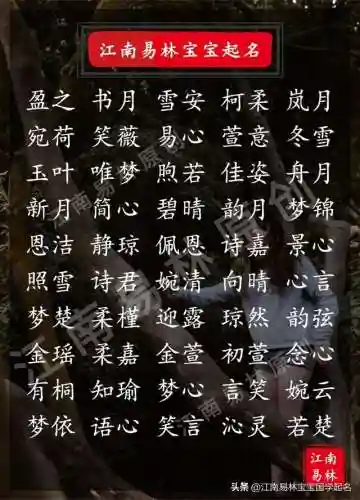 江南易林宝宝起名
盈之 书月 雪安 柯柔 岚月
宛荷 笑薇 易心 萱意 冬雪
玉叶 唯梦 煦若 佳姿 舟月
新月 简心 碧晴 韵月 梦锦
恩洁 静琼 佩恩 诗嘉 景心
照雪 诗君 婉清 向晴 心言
梦楚 柔槿 迎露 琼然 韵弦
金瑶 柔嘉 金萱 初萱 念心
有桐 知瑜 梦心 言笑 婉云
梦依 语心 笑言 沁灵 若楚
江南易林原创
江南易林原创
江南
易林
头条 @江南易林宝宝国学起名